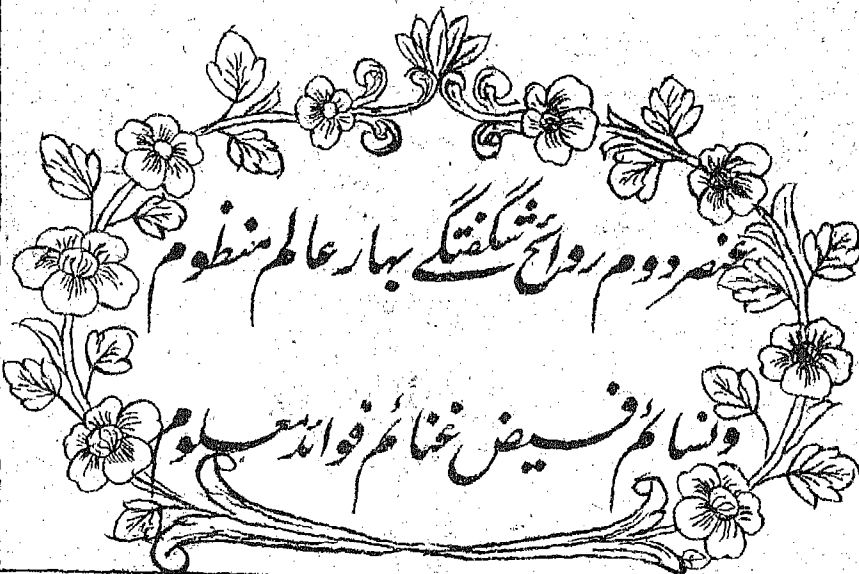 عنصر دوم روائح شگفتگے بهار عالم منظوم
ونسائم فیض غنائم فوائد معلوم